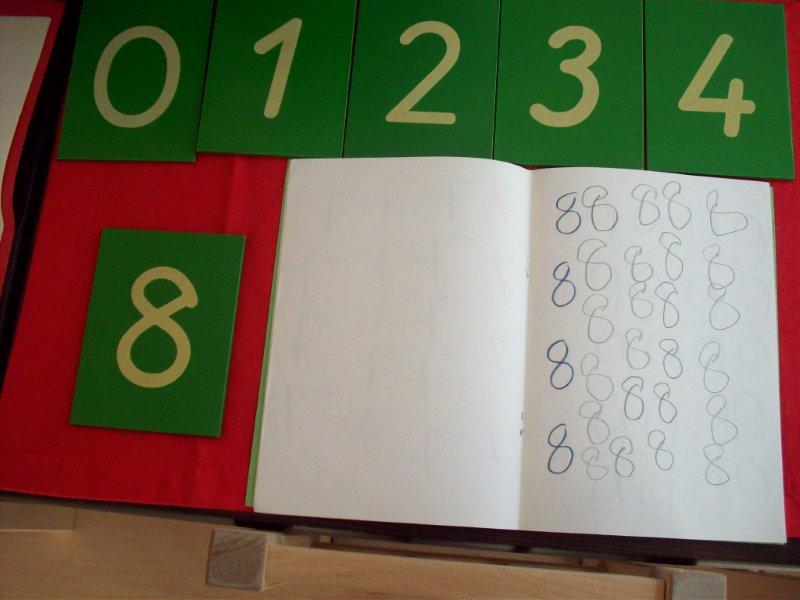 0 1 2 3 4
8
8 8 8 8 8
8 8 8 8 8
8 8 8 8
8 8 8 8 8
8 8 8 8
8 8 8 8 8